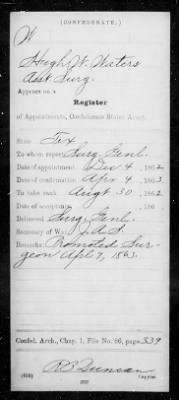 (CONFEDERATE.)
W
Hugh W. Waters
Asst Surg.
Appears on a
Register
of Appointments, Confederate States Army.
State Tex
To whom report Surg. Genl.
Date of appointment Dec 4, 1862
Date of confirmation Apr 4, 1863
To take rank Augt 30, 1862
Date of acceptance , 186
Delivered Surg. Genl.
Secretary of War J. A. S.
Remarks: Promoted Sur-
geon Apl 7, 1863.
Confed. Arch., Chap. 1, File No. 86, page 339
R S Duncan
Copyist.